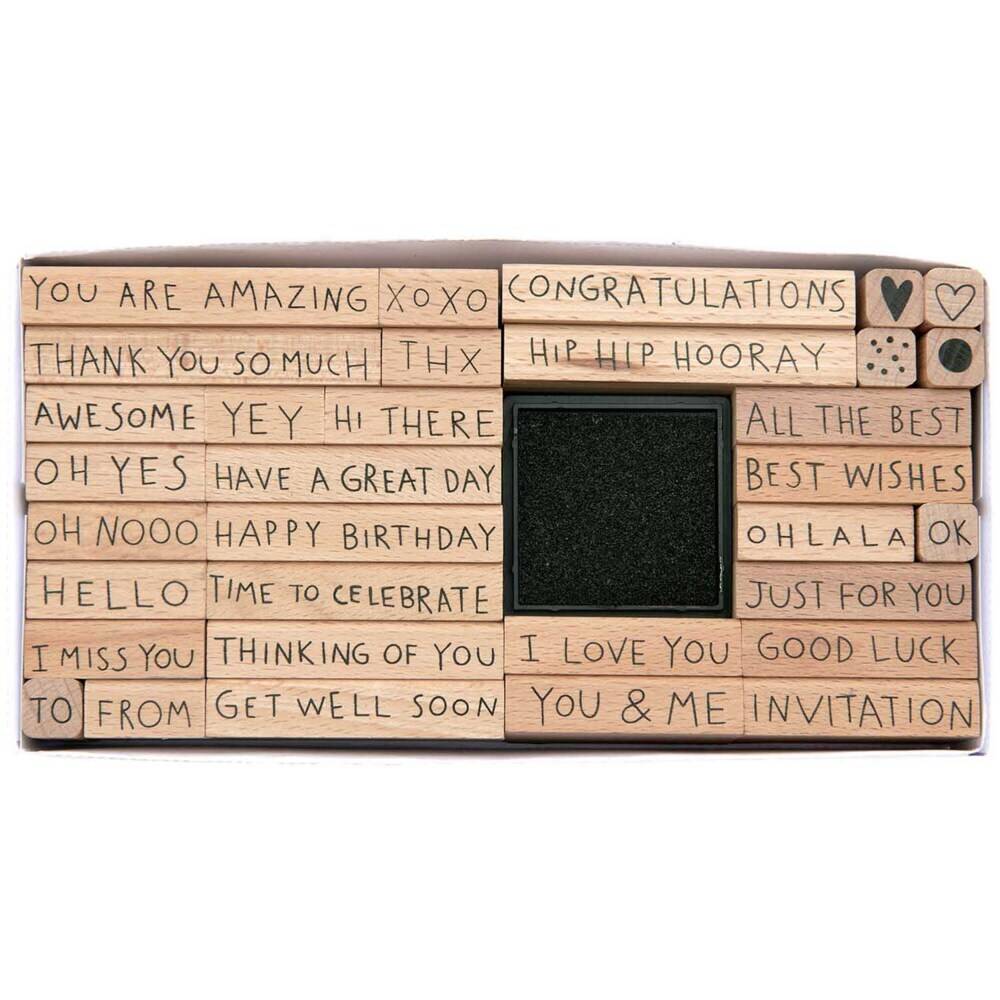 YOU ARE AMAZING
XOXO
CONGRATULATIONS
THANK YOU SO MUCH
THX
HIP HIP HOORAY
AWESOME
YEY
HI THERE
ALL THE BEST
OH YES
HAVE A GREAT DAY
BEST WISHES
OH NOOO
HAPPY BIRTHDAY
OHLALA
OK
HELLO
TIME TO CELEBRATE
JUST FOR YOU
I MISS YOU
THINKING OF YOU
I LOVE YOU
GOOD LUCK
TO
FROM
GET WELL SOON
YOU & ME
INVITATION